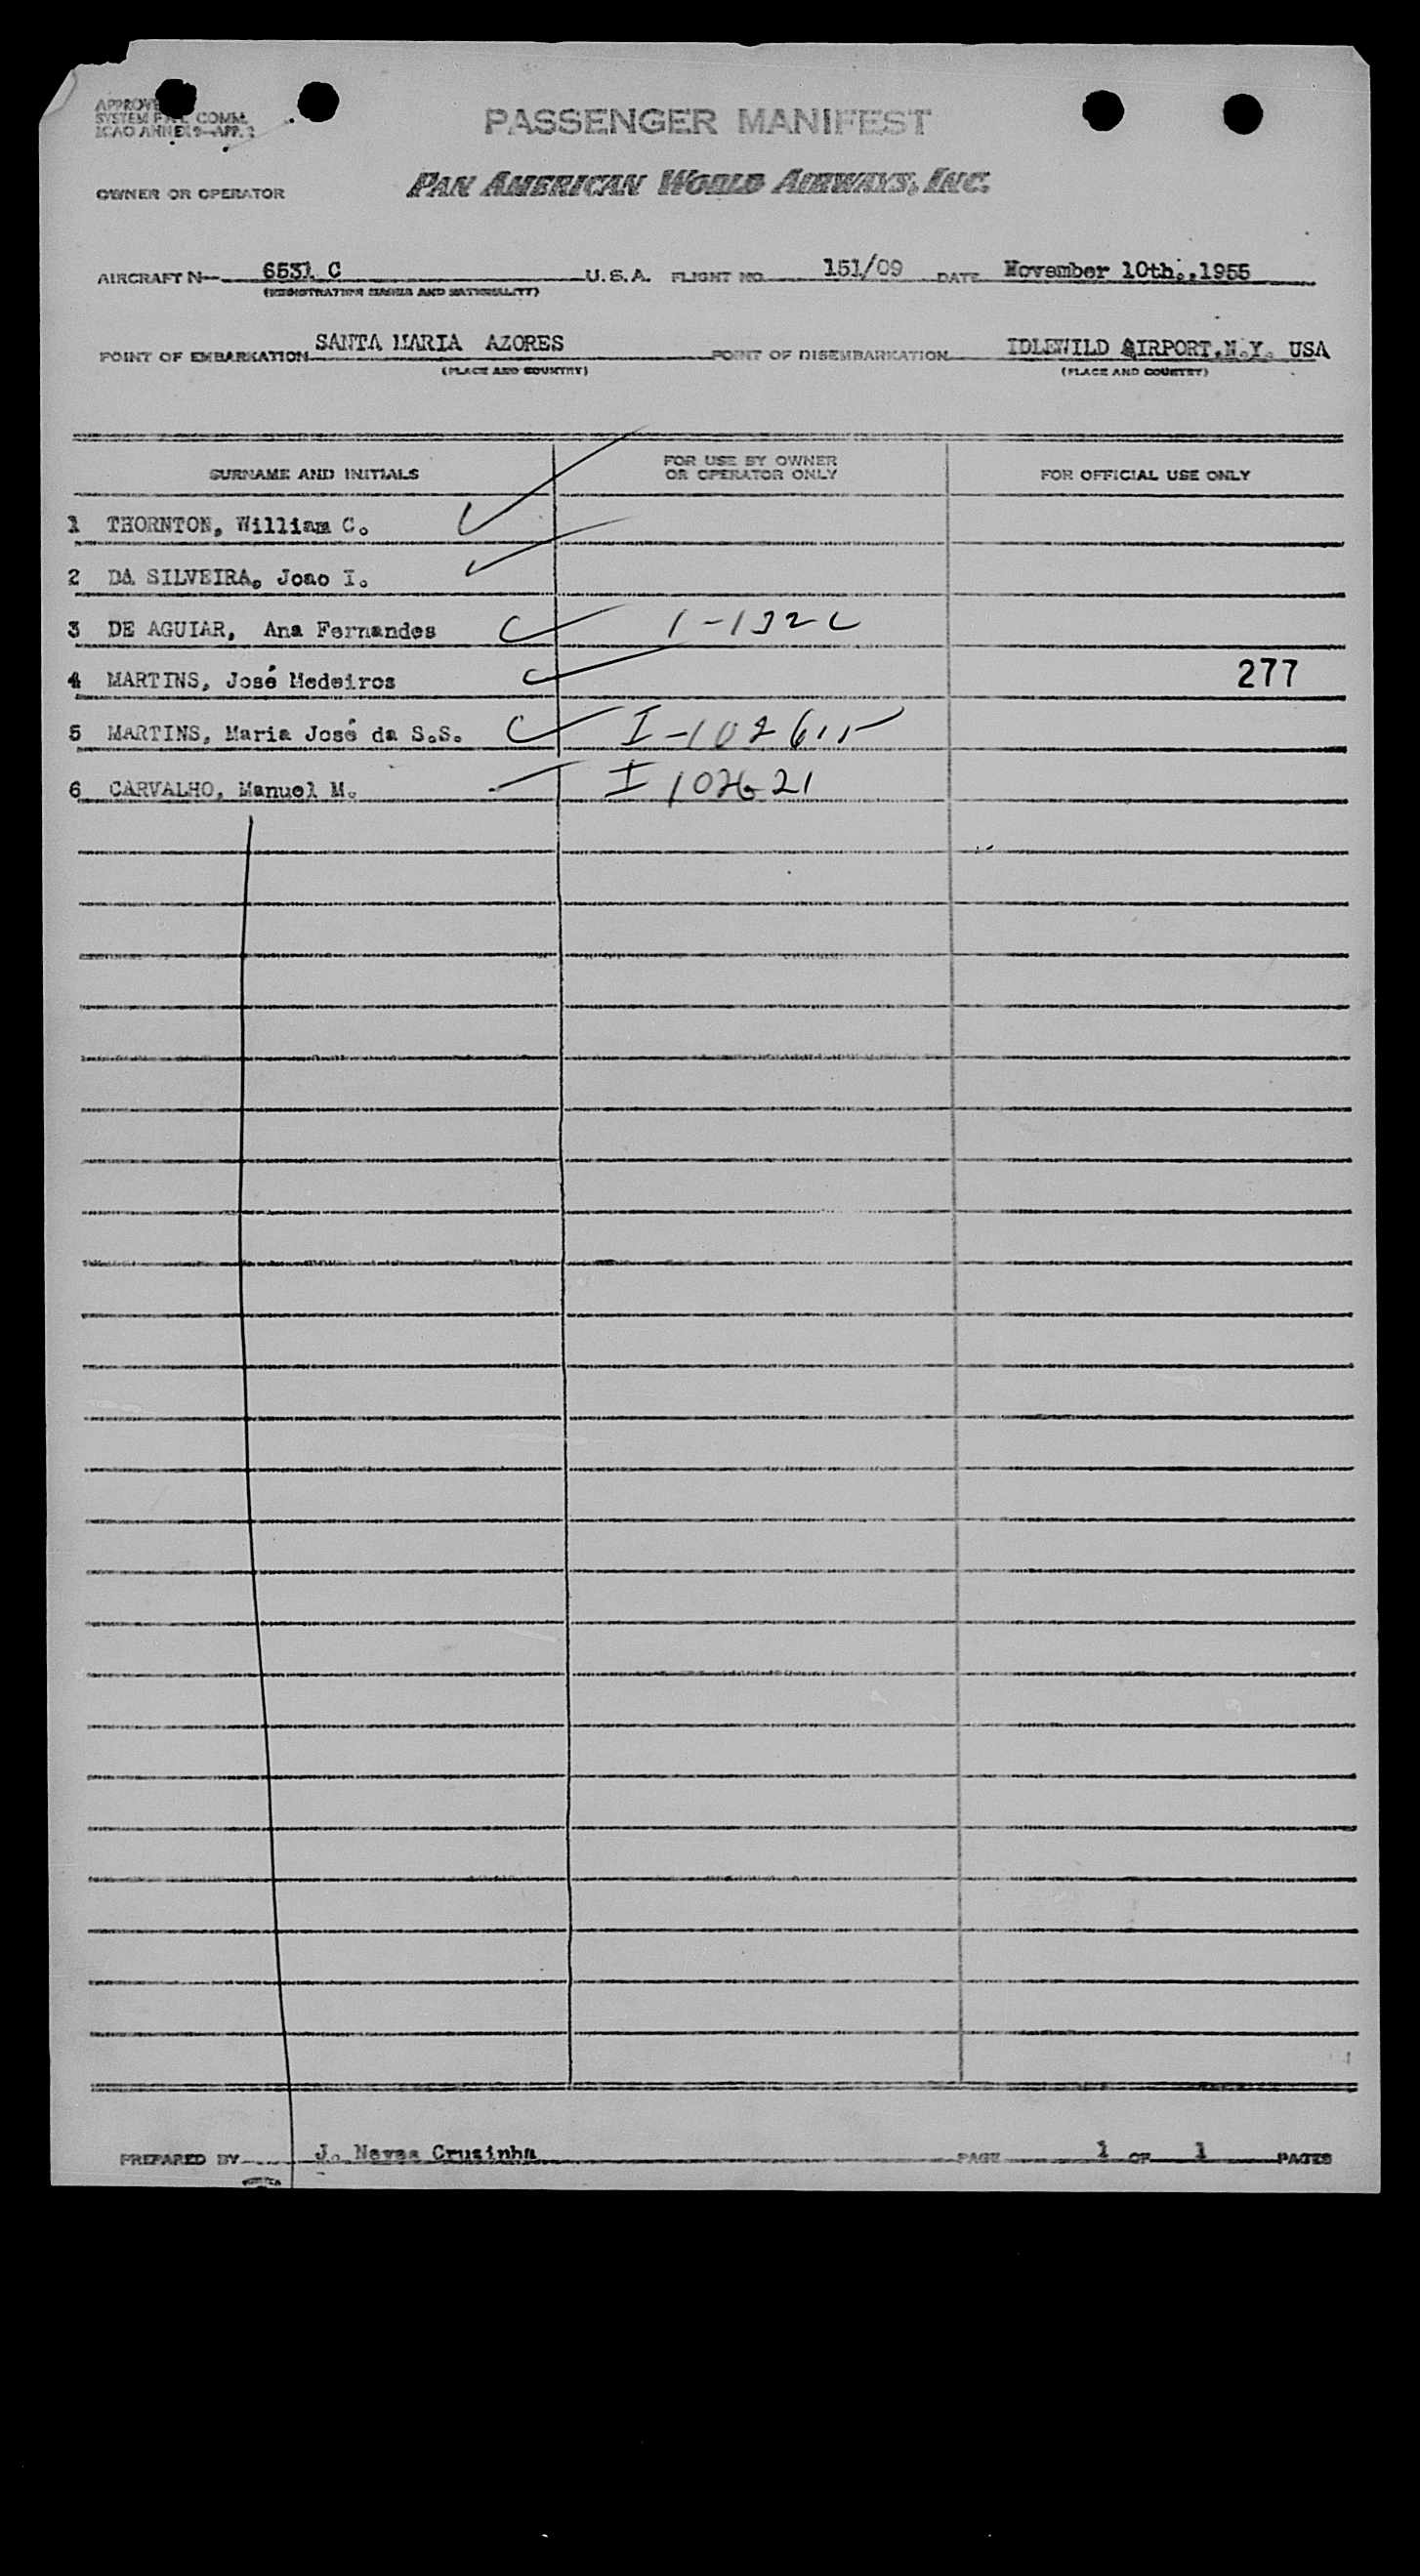 APPROVED
SYSTEM FAL COMM.
ICAO ANNEX 9—APP. 2
PASSENGER MANIFEST
OWNER OR OPERATOR PAN AMERICAN WORLD AIRWAYS, INC.
AIRCRAFT N— 6531 C U.S.A. FLIGHT NO. 151/09 DATE November 10th.,1955
(REGISTRATION MARKS AND NATIONALITY)
POINT OF EMBARKATION SANTA MARIA AZORES POINT OF DISEMBARKATION IDLEWILD AIRPORT.N.Y. USA
(PLACE AND COUNTRY) (PLACE AND COUNTRY)
SURNAME AND INITIALS FOR USE BY OWNER OR OPERATOR ONLY FOR OFFICIAL USE ONLY
1 THORNTON, William C.
2 DA SILVEIRA, Joao I.
3 DE AGUIAR, Ana Fernandes 1-132
4 MARTINS, José Medeiros 277
5 MARTINS, Maria José da S.S. I-102611
6 CARVALHO, Manuel M. I 102621
PREPARED BY J. Neves Cruzinha PAGE 1 OF 1 PAGES